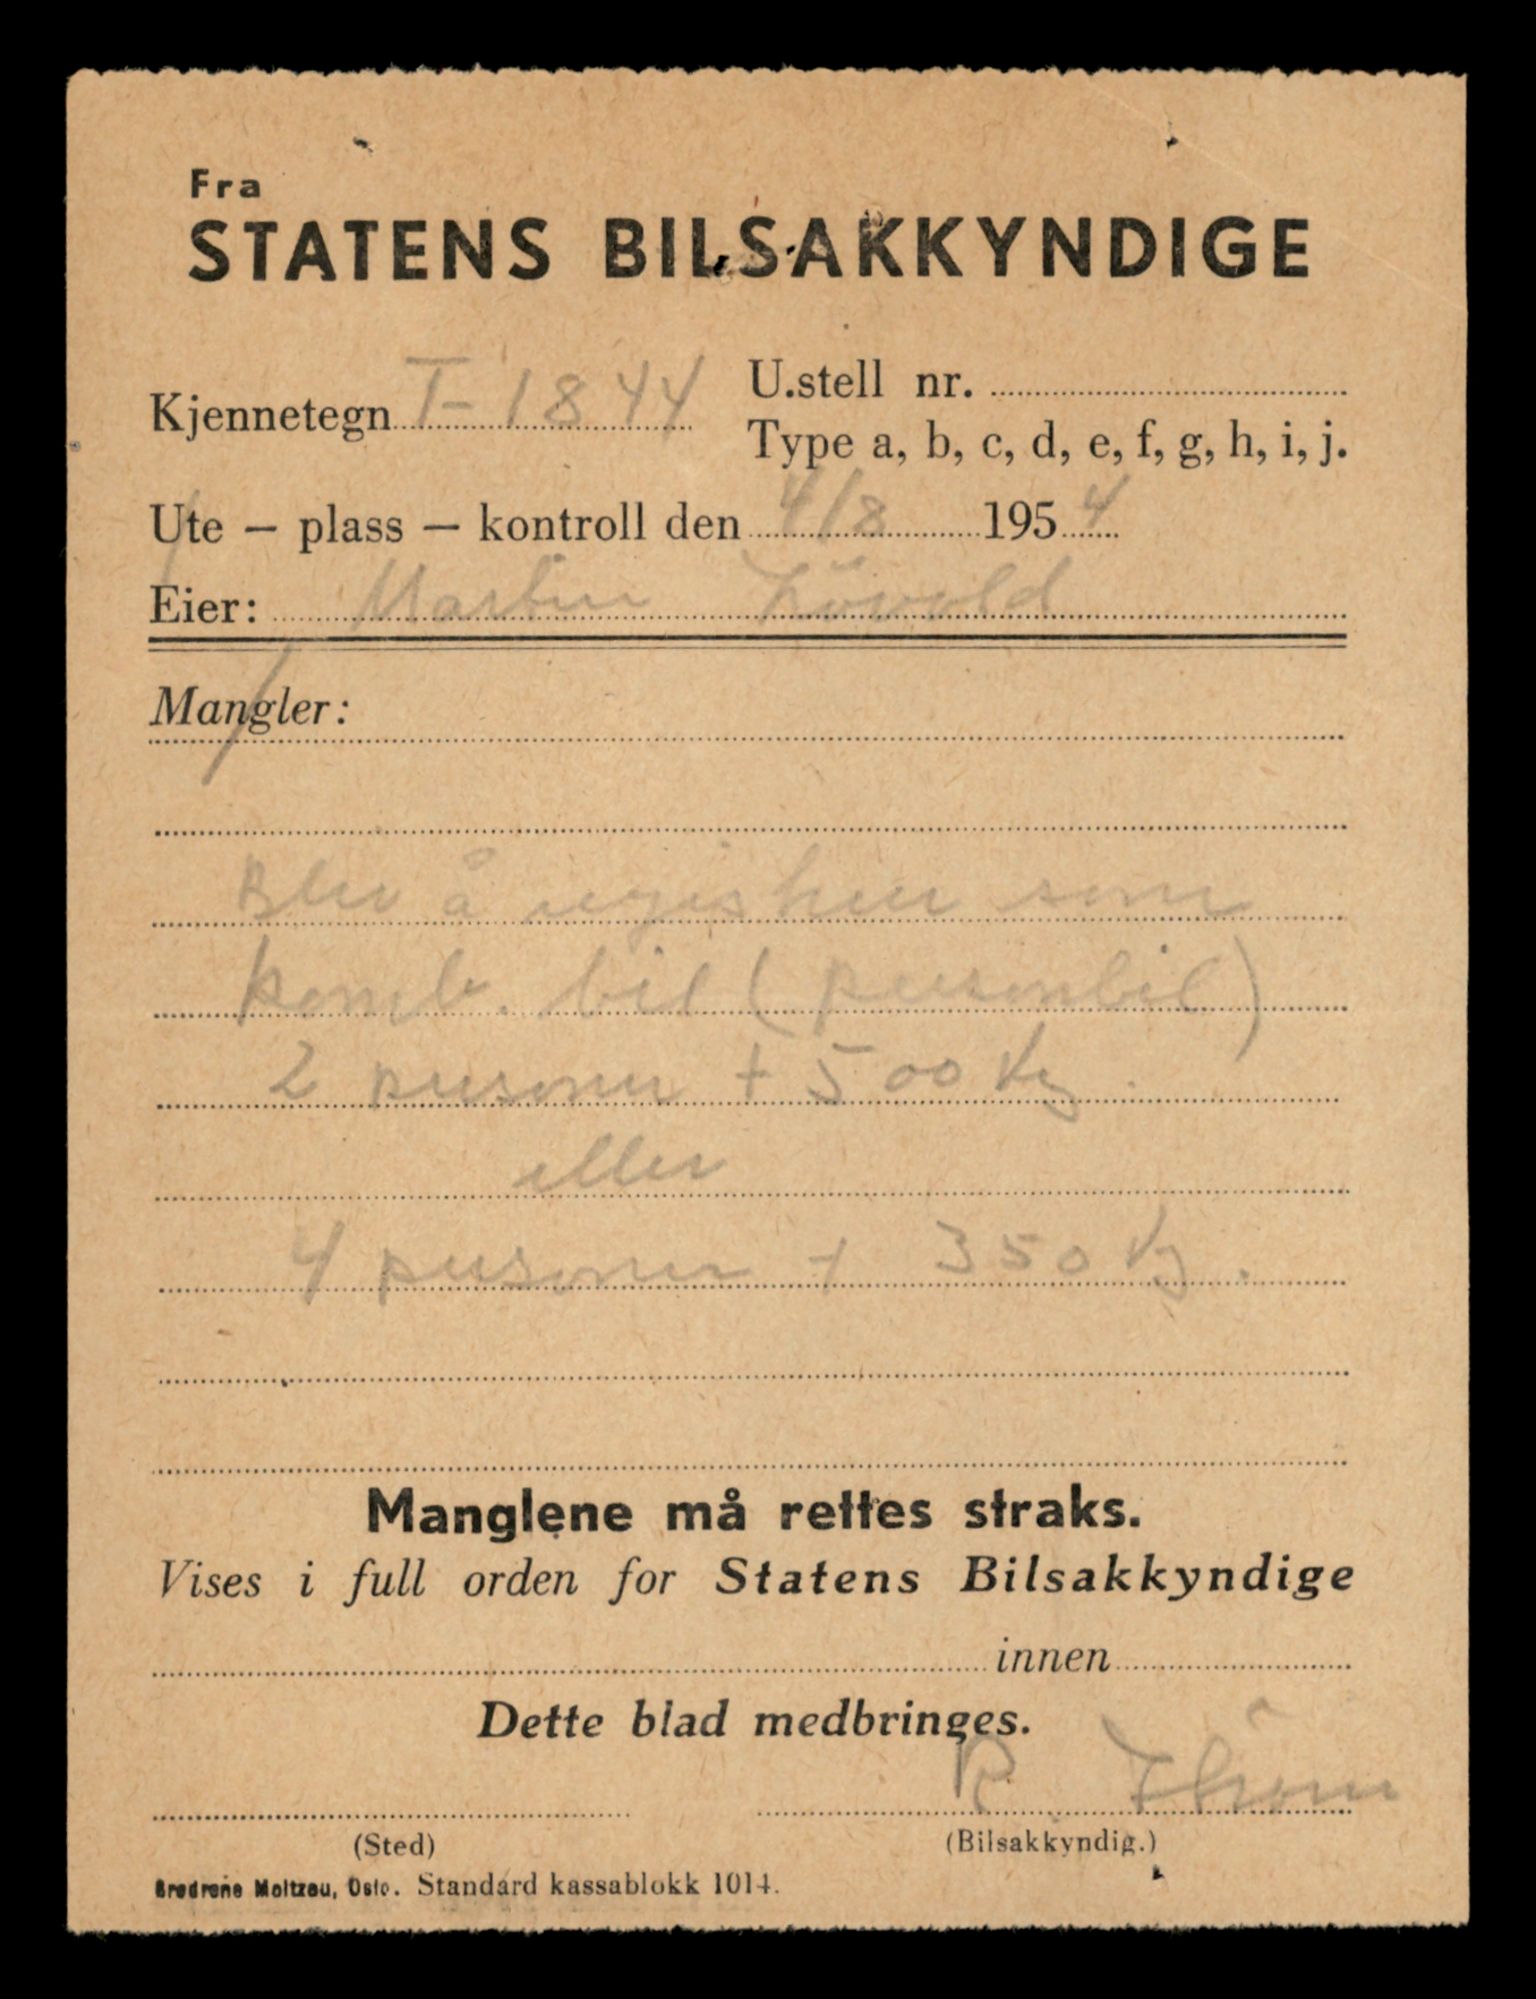 Fra
STATENS BILSAKKYNDIGE
Kjennetegn T-1844
U.stell nr.
Type a, b, c, d, e, f, g, h, i, j.
Ute – plass – kontroll den 4/8 1954
Eier: Martin
Mangler:
Blir å registrere som
komb. bil (personbil)
2 personer + 500 kg.
eller
4 personer + 350 kg.
Manglene må rettes straks.
Vises i full orden for Statens Bilsakkyndige
innen
Dette blad medbringes.
(Sted)
(Bilsakkyndig.)
Brødrene Moltzau, Oslo. Standard kassablokk 1014.